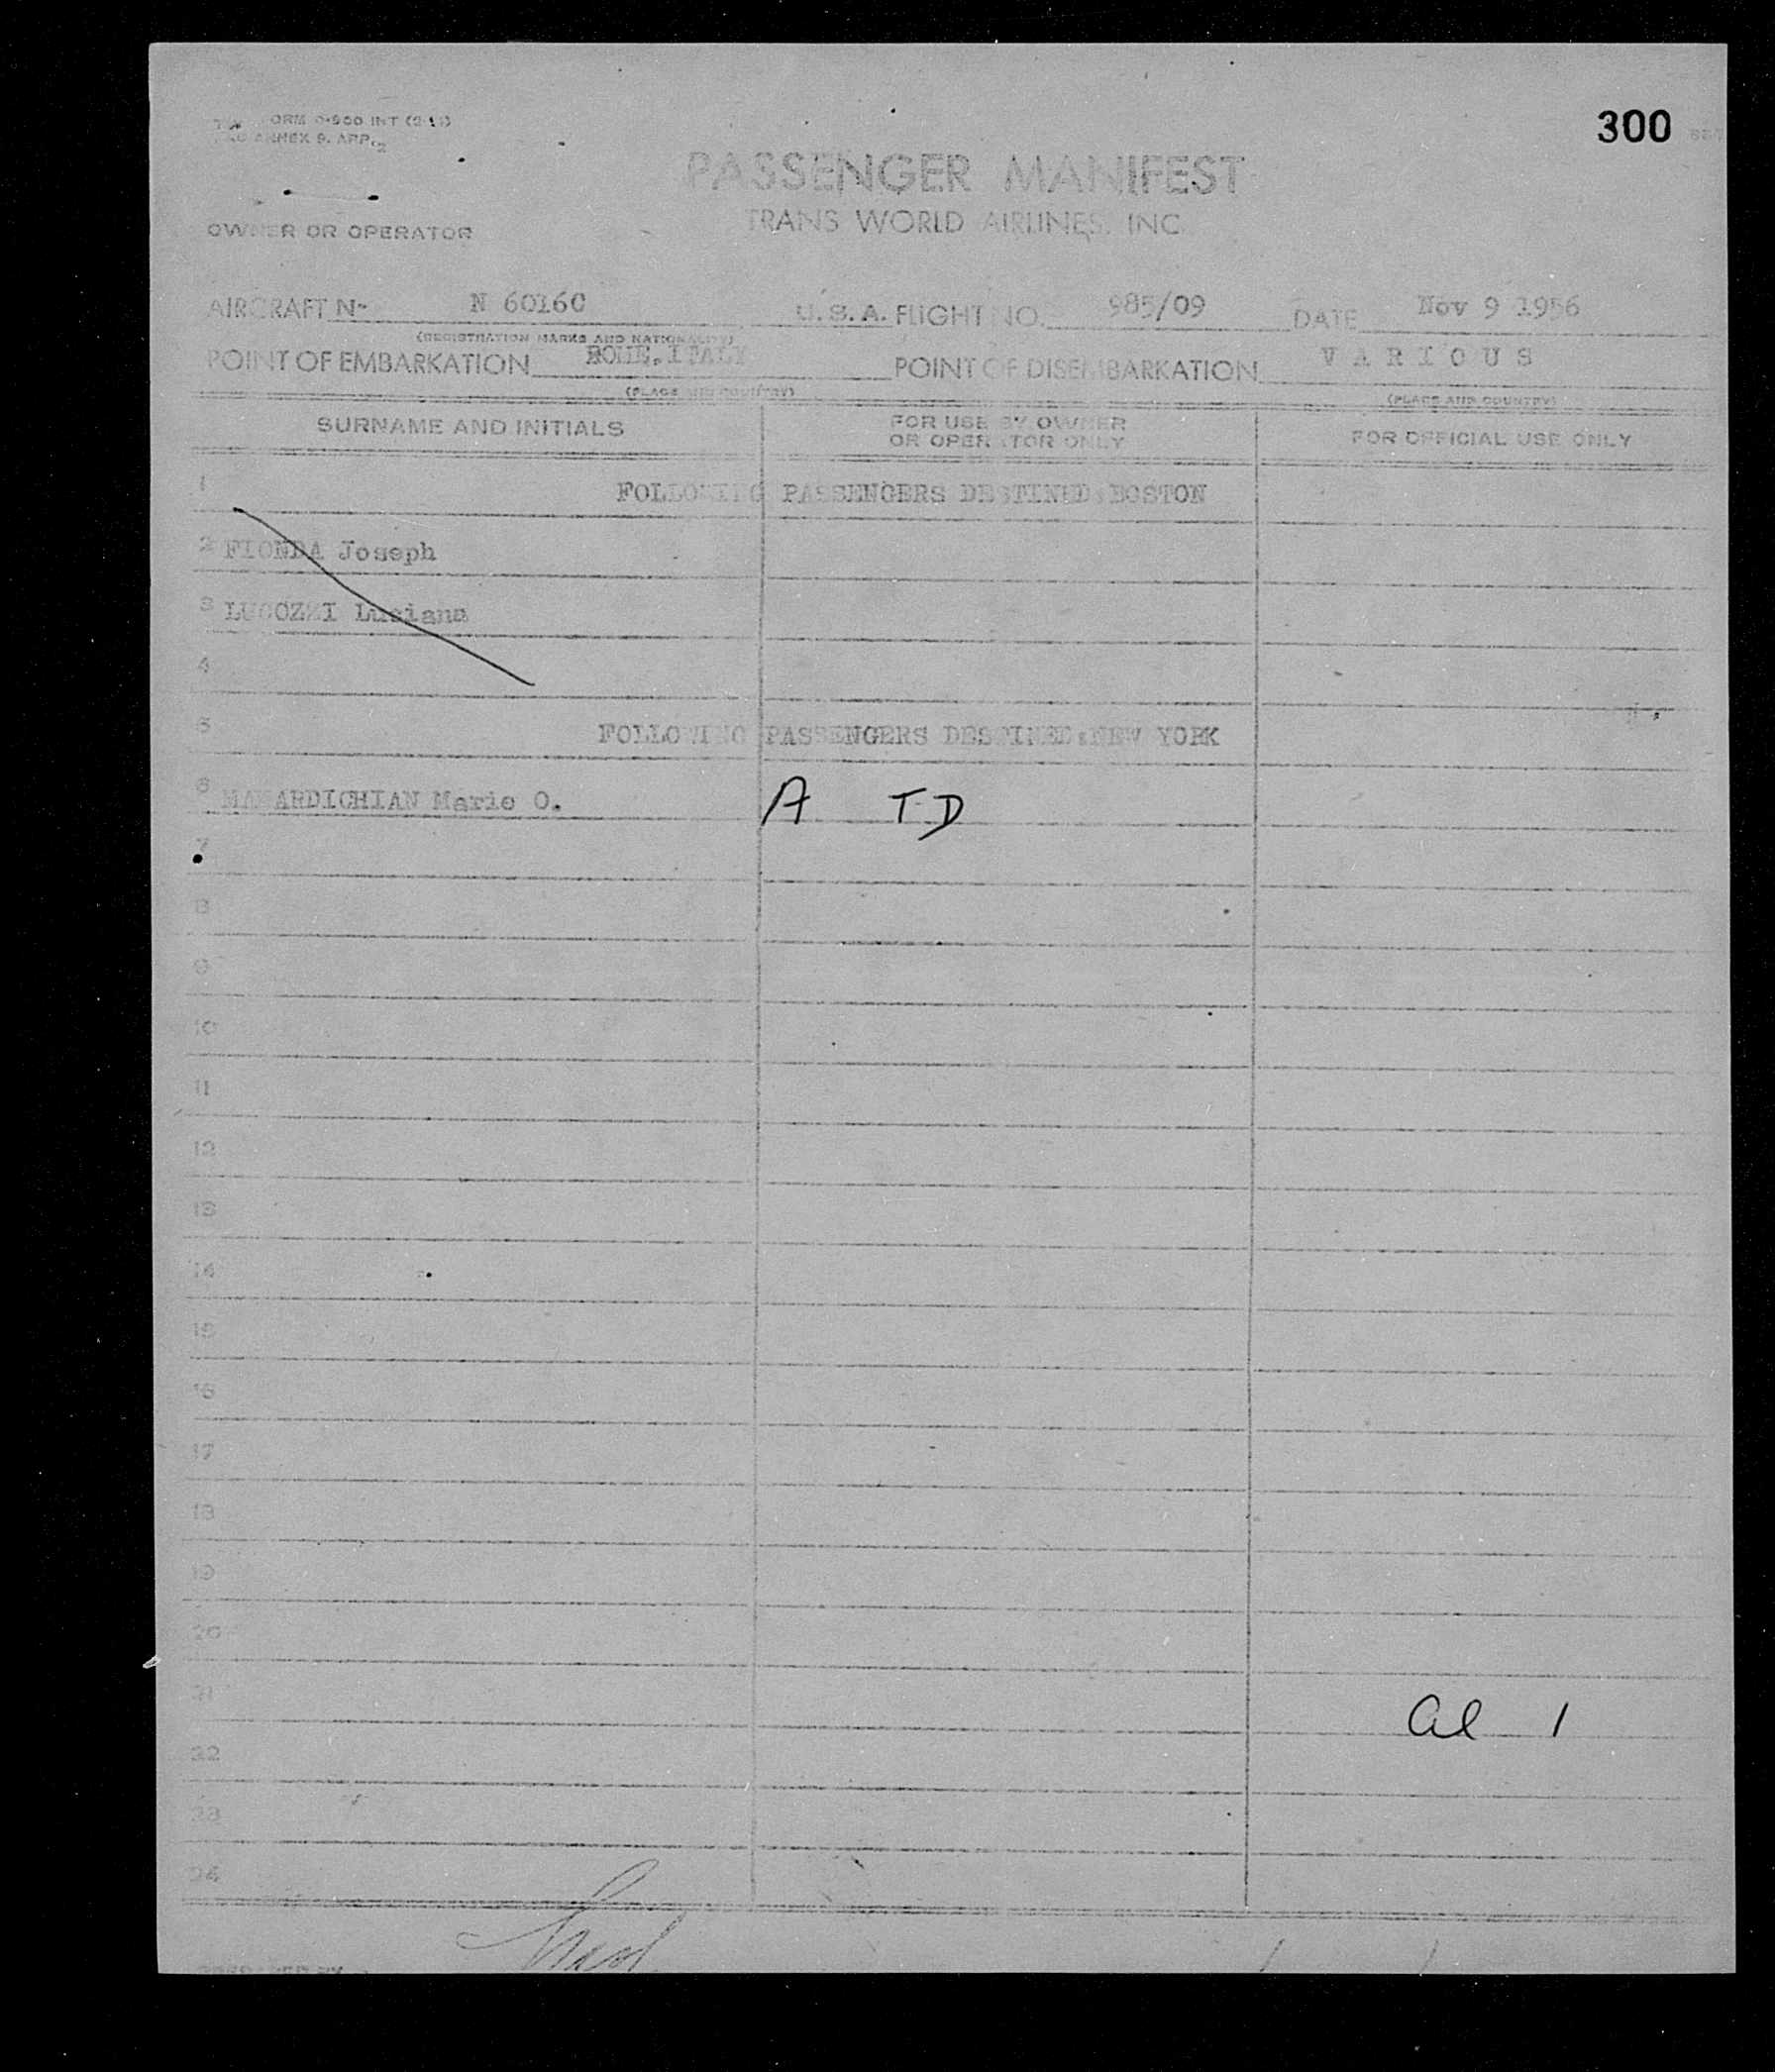 300
ORM 0-900 INT
ANNEX 9. APP. 2
PASSENGER MANIFEST
TRANS WORLD AIRLINES, INC.
OWNER OR OPERATOR
AIRCRAFT No N 60160 U.S.A. FLIGHT NO. 985/09 DATE Nov 9 1956
(REGISTRATION MARKS AND NATIONALITY)
POINT OF EMBARKATION ROME.ITALY POINT OF DISEMBARKATION V A R I O U S
(PLACE AND COUNTRY) (PLACE AND COUNTRY)
SURNAME AND INITIALS FOR USE BY OWNER OR OPERATOR ONLY FOR OFFICIAL USE ONLY
1 FOLLOWING PASSENGERS DESTINED:BOSTON
2 FIONDA Joseph
3 Luciana
4
5 FOLLOWING PASSENGERS DESTINED:NEW YORK
6 Marie O. A TD
7
8
9
10
11
12
13
14
15
16
17
18
19
20
21 al 1
22
23
24
PREPARED BY